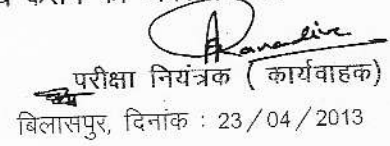 परीक्षा नियंत्रक ( कार्यवाहक)
बिलासपुर, दिनांक : 23/04/2013